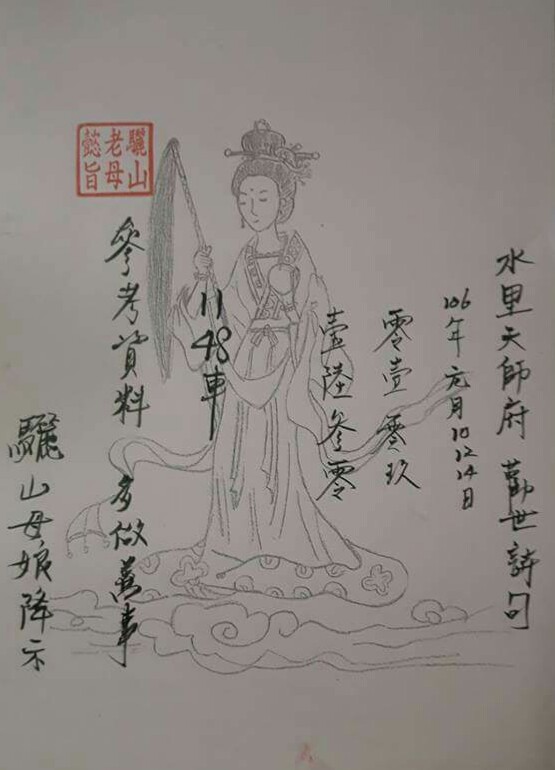 水里天師府 勸世詩句
106年元月10 12 14日
零壹 零玖
壹陸參零
11 48車
參考資料 多做善事
驪山母娘降示
驪山
老母
懿旨